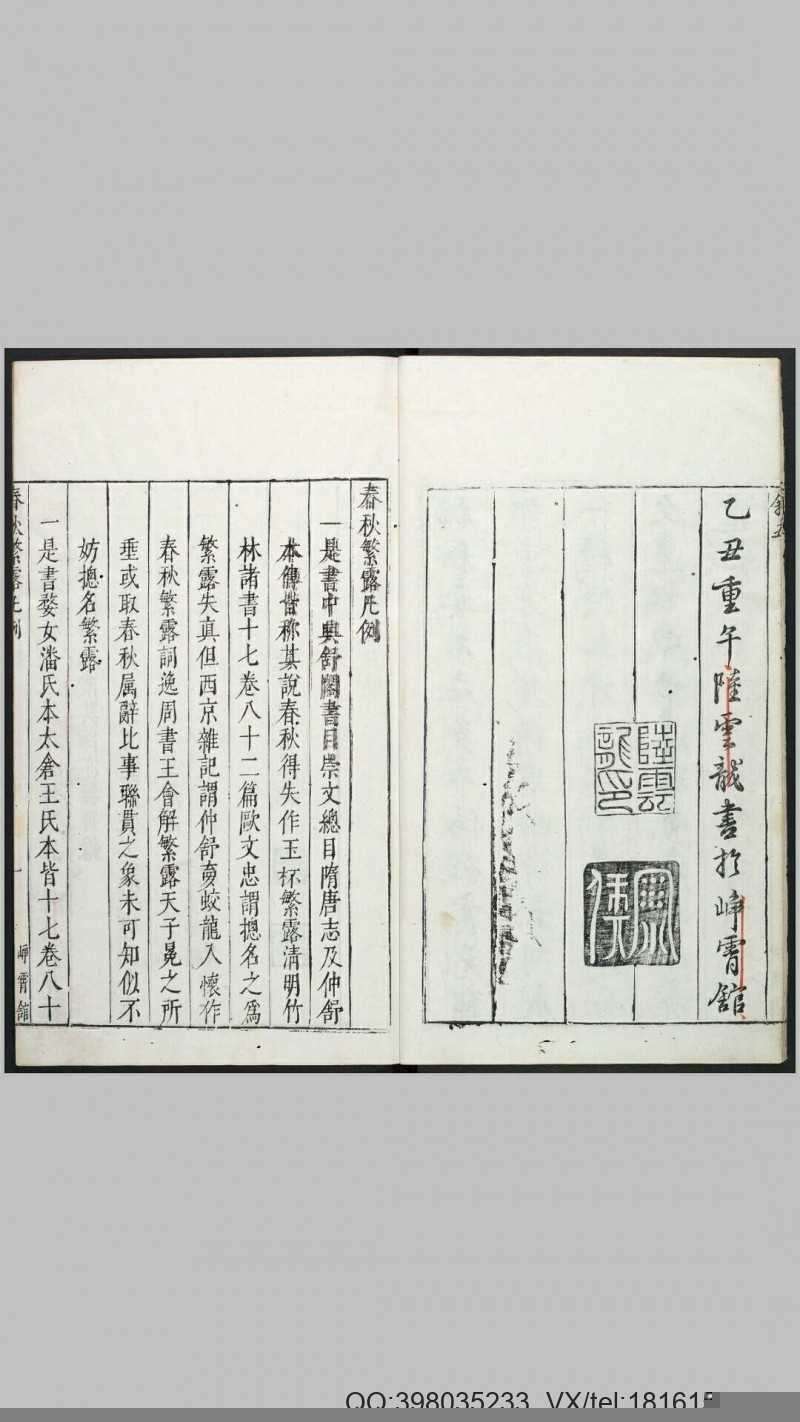 乙丑重午陸雲龍書於崢霄館
陸雲
龍印
春秋繁露凡例
一是書中興舒閣書目崇文總目隋唐志及仲舒
本傳皆稱其說春秋得失作玉杯繁露清明竹
林諸書十七卷八十二篇歐文忠謂揔名之爲
繁露失真但西京雜記謂仲舒夣蛟龍入懷作
春秋繁露詞逸周書王會解繁露天子冕之所
垂或取春秋属辭比事聯貫之象未可知似不
妨揔名繁露
一是書婺女潘氏本太倉王氏本皆十七卷八十
春秋繁露凡例
一
崢霄館
QQ:398035233 VX/tel:18161